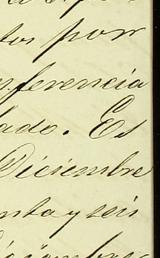 tos por
nferencia
lado. Es
Diciembre
enta y seis